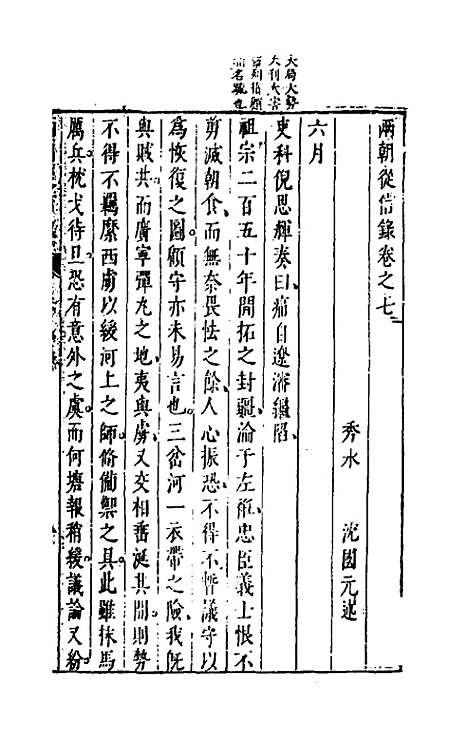 兩朝從信錄卷之七
秀水 沈國元述
六月
吏科倪思輝奏曰痛自遼瀋繼陷
祖宗二百五十年開拓之封疆淪于左衽忠臣義士恨不
剪滅朝食而無奈畏怯之餘人心振恐不得不暫議守以
爲恢復之圖顧守亦未易言也三岔河一衣帶之險我旣
與賊共而廣寧彈丸之地夷與虜又交相垂涎其間則勢
不得不羈縻西虜以緩河上之師脩備禦之具此雖秣馬
厲兵枕戈待旦恐有意外之虞而何塘報稍緩議論又紛
大局大勢
大利大害